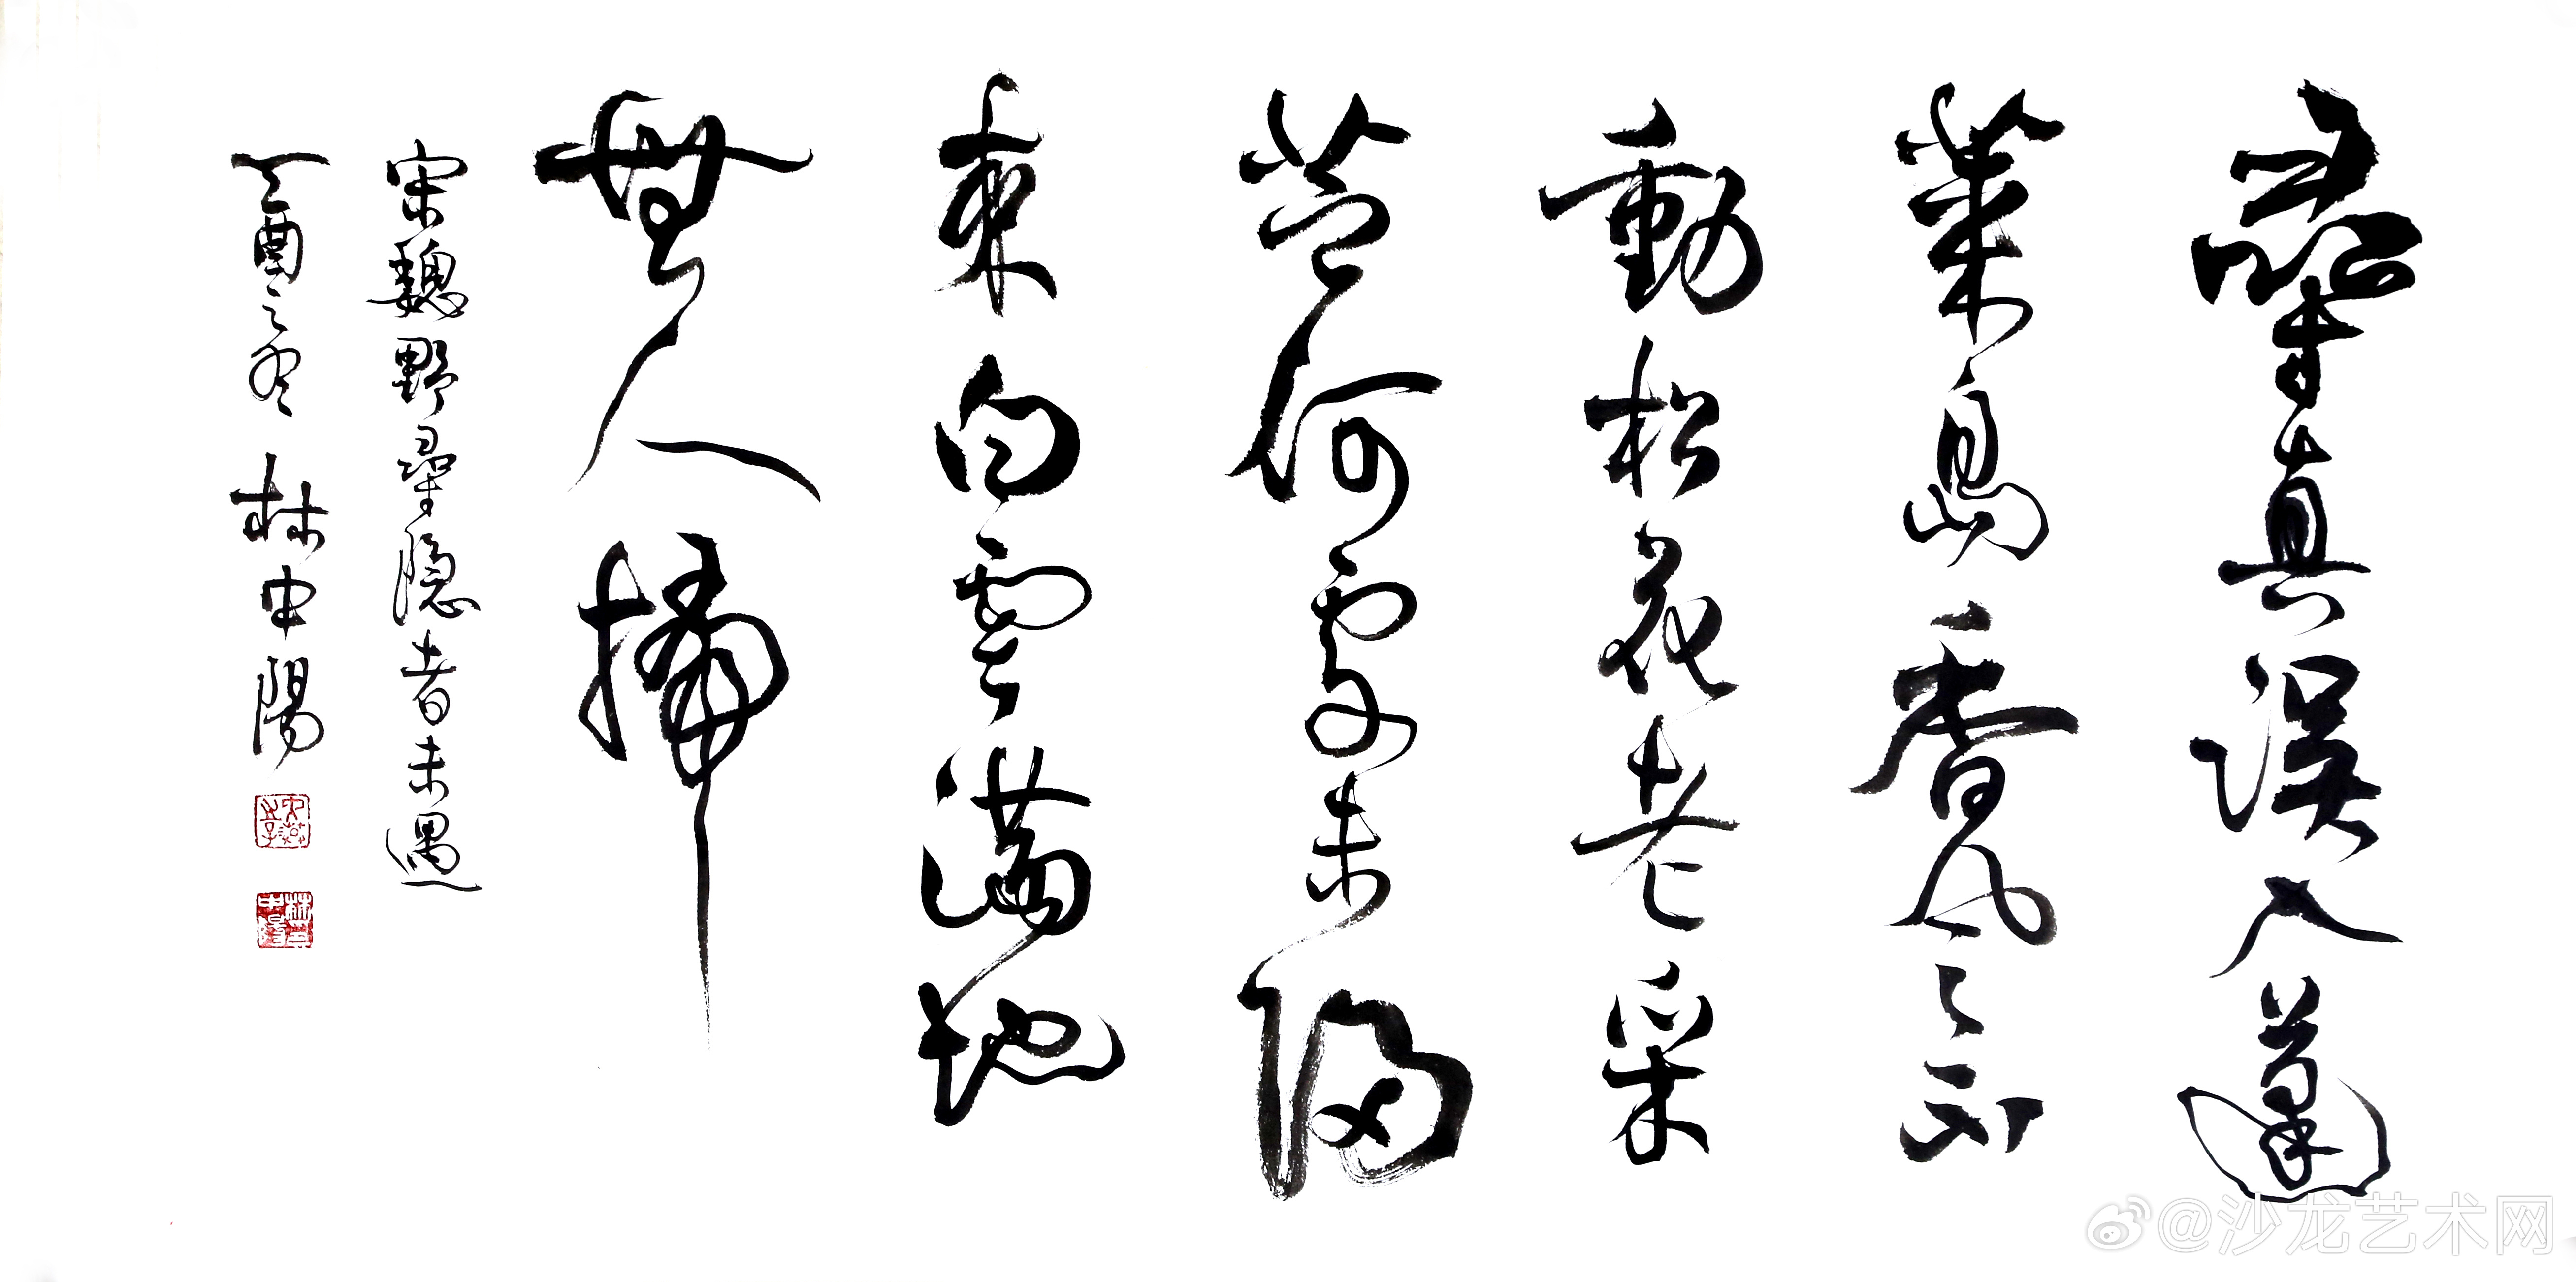 尋真誤入蓬
萊島香風不
動松花老采
芝何處未歸
來白雲滿地
無人掃
宋魏野尋隱者未遇
丁酉之冬 林中陽
@沙龙艺术网